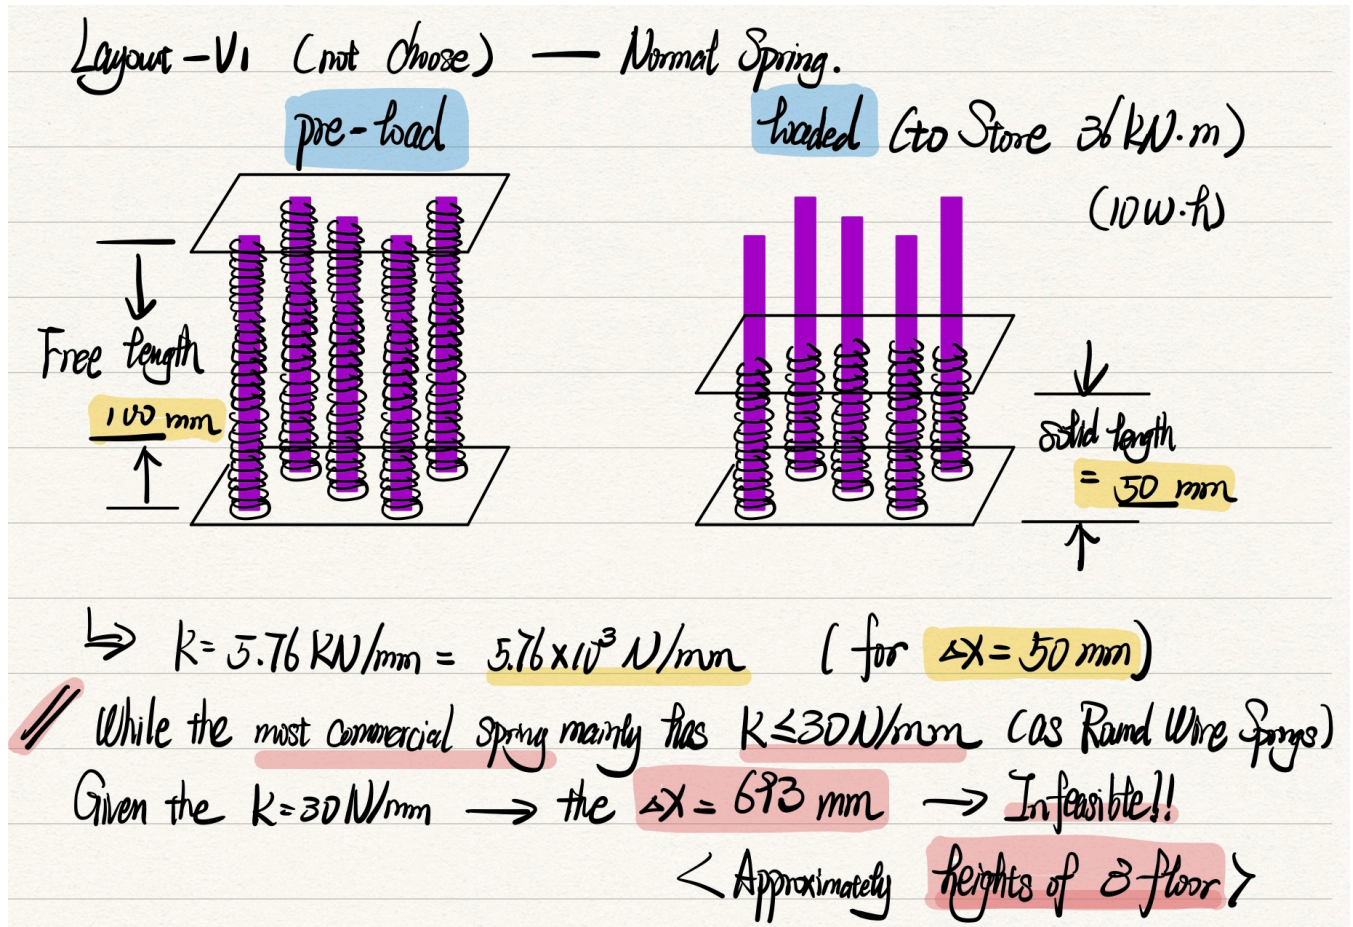 Layout-V1 (not choose) — Normal Spring.
pre-load
loaded (to Store 36 kN·m)
(10 W·h)
Free length
100 mm
solid length
= 50 mm
↳ k = 5.76 KN/mm = 5.76×10³ N/mm ( for ΔX = 50 mm)
// While the most commercial spring mainly has K≤30N/mm (as Round Wire Springs)
Given the K=30N/mm → the ΔX = 693 mm → Infeasible!!
< Approximately heights of 3 floor >